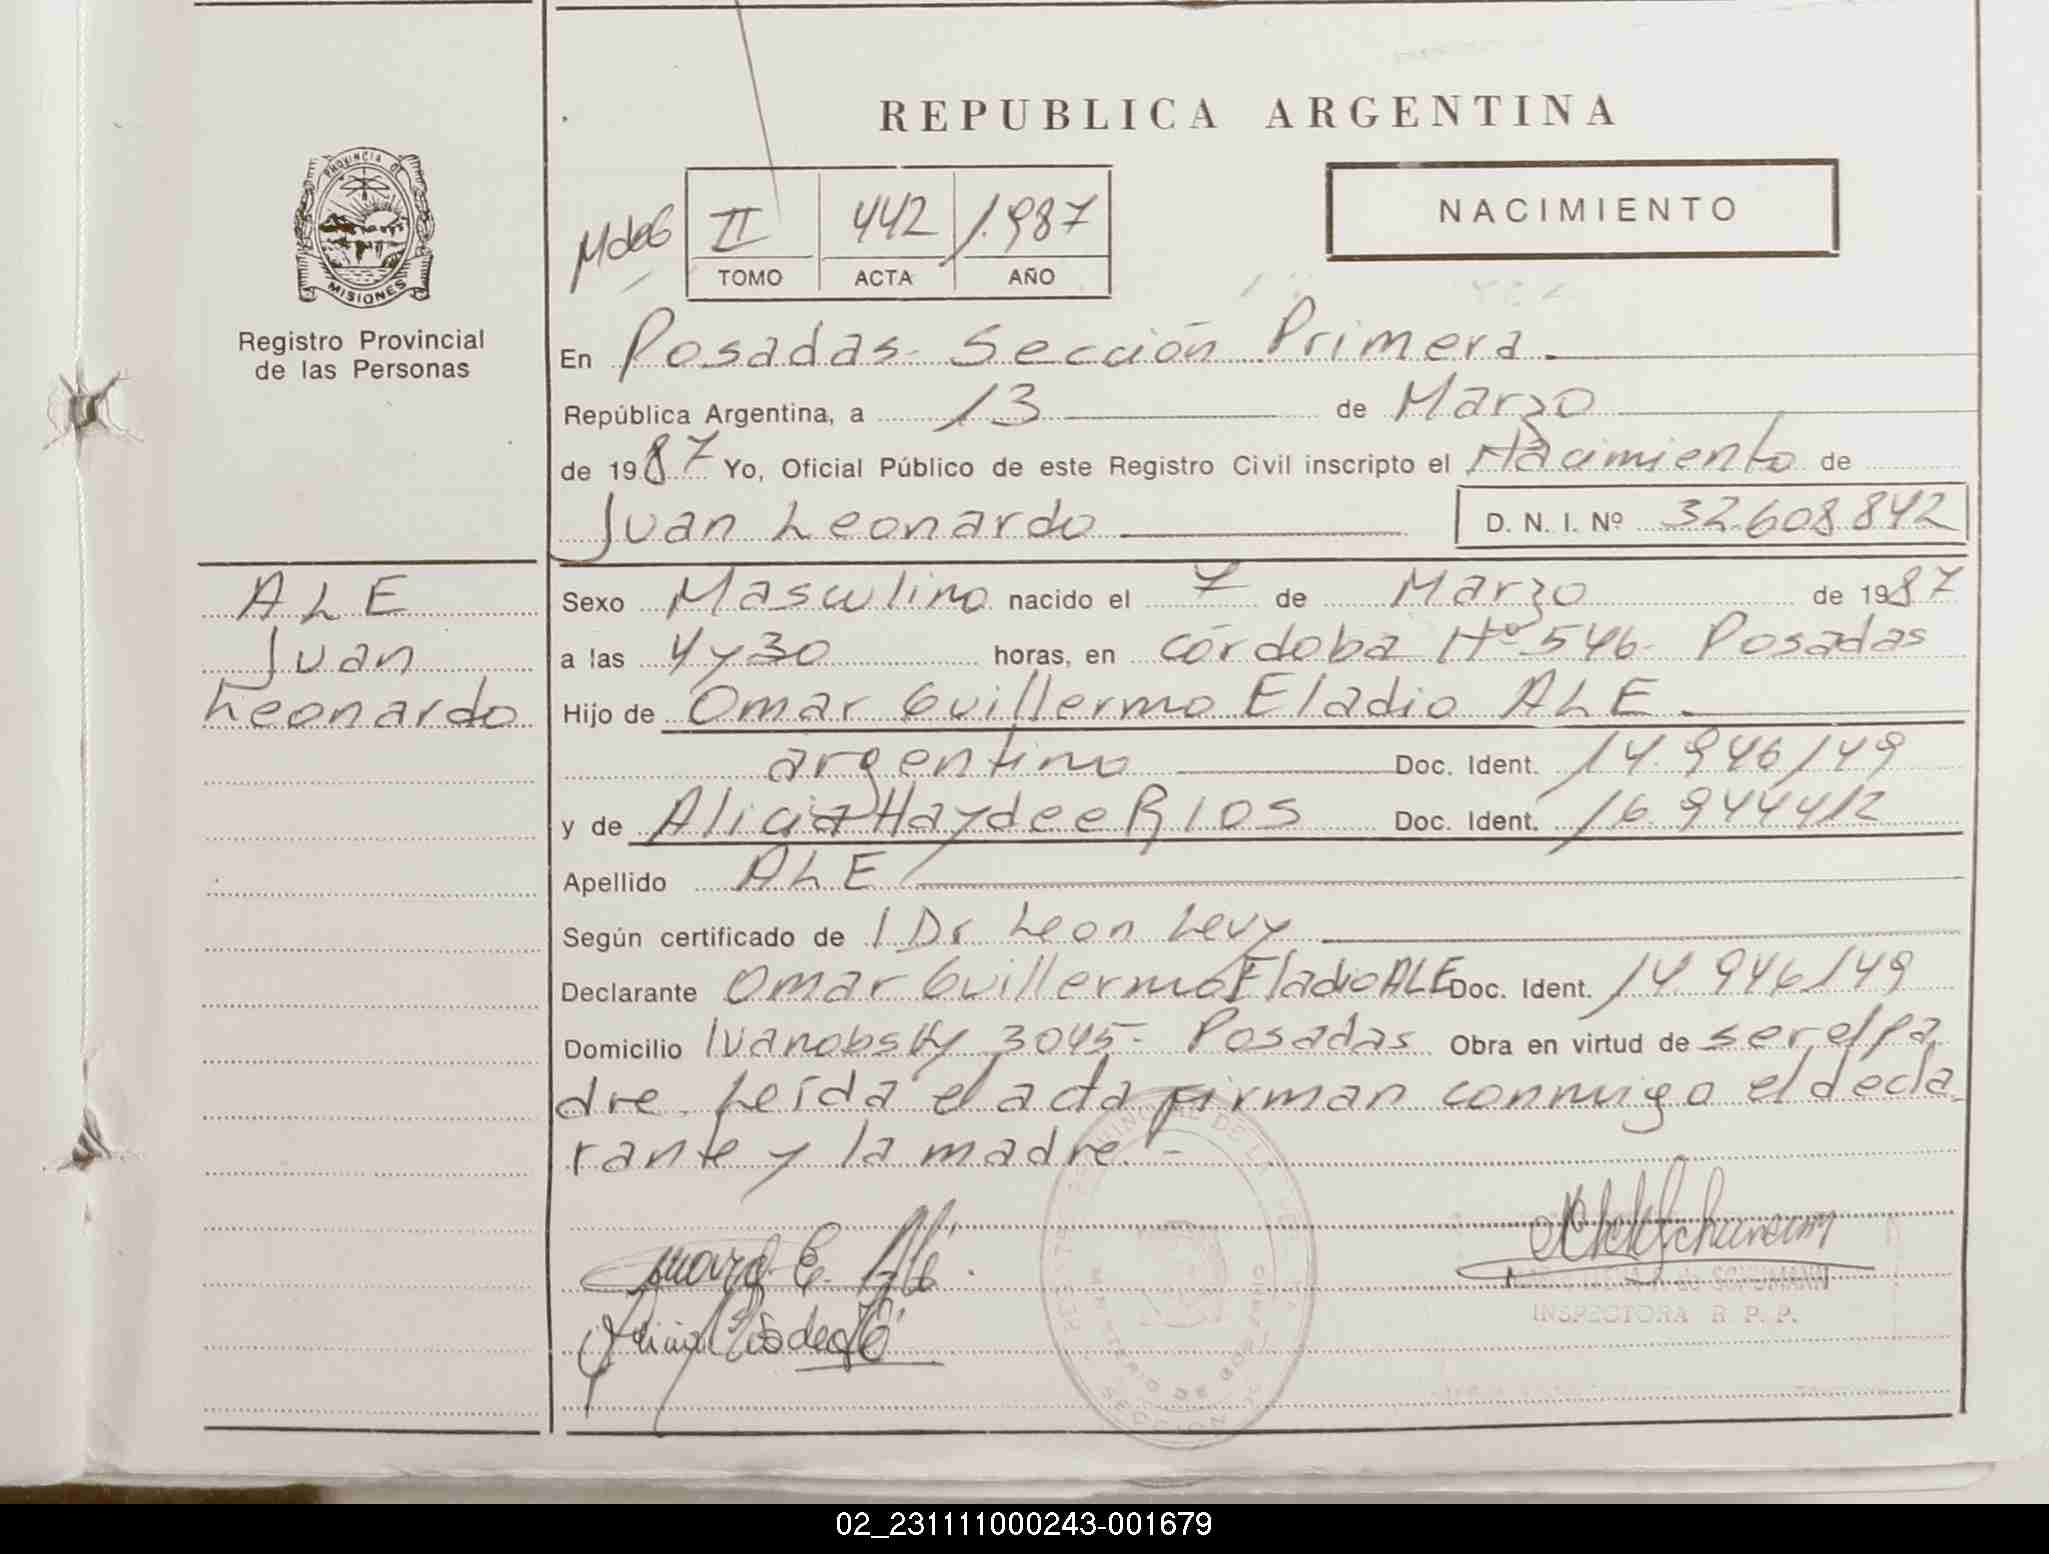 REPUBLICA ARGENTINA
PROVINCIA DE
MISIONES
Registro Provincial
de las Personas
NACIMIENTO
MdeG II 442 1.987
TOMO ACTA AÑO
En Posadas- Sección Primera.
República Argentina, a 13 de Marzo
de 1987 Yo, Oficial Público de este Registro Civil inscripto el Nacimiento de
Juan Leonardo D. N. I. Nº 32.608.842
ALE
Juan
Leonardo
Sexo Masculino nacido el 7 de Marzo de 1987
a las 4 y 30 horas, en córdoba Nº 546- Posadas
Hijo de Omar Guillermo Eladio ALE.
argentino Doc. Ident. 14.946149
y de Alicia Haydee RIOS Doc. Ident. 16.944412
Apellido ALE
Según certificado de l Dr Leon Levy
Declarante Omar Guillermo Eladio ALE Doc. Ident. 14.946149
Domicilio Ivanobsky 3045- Posadas Obra en virtud de ser el pa
dre. Leída el acta firman conmigo el decla
rante y la madre.-
de SCHUMANN
INSPECTORA R. P. P.
02_231111000243-001679